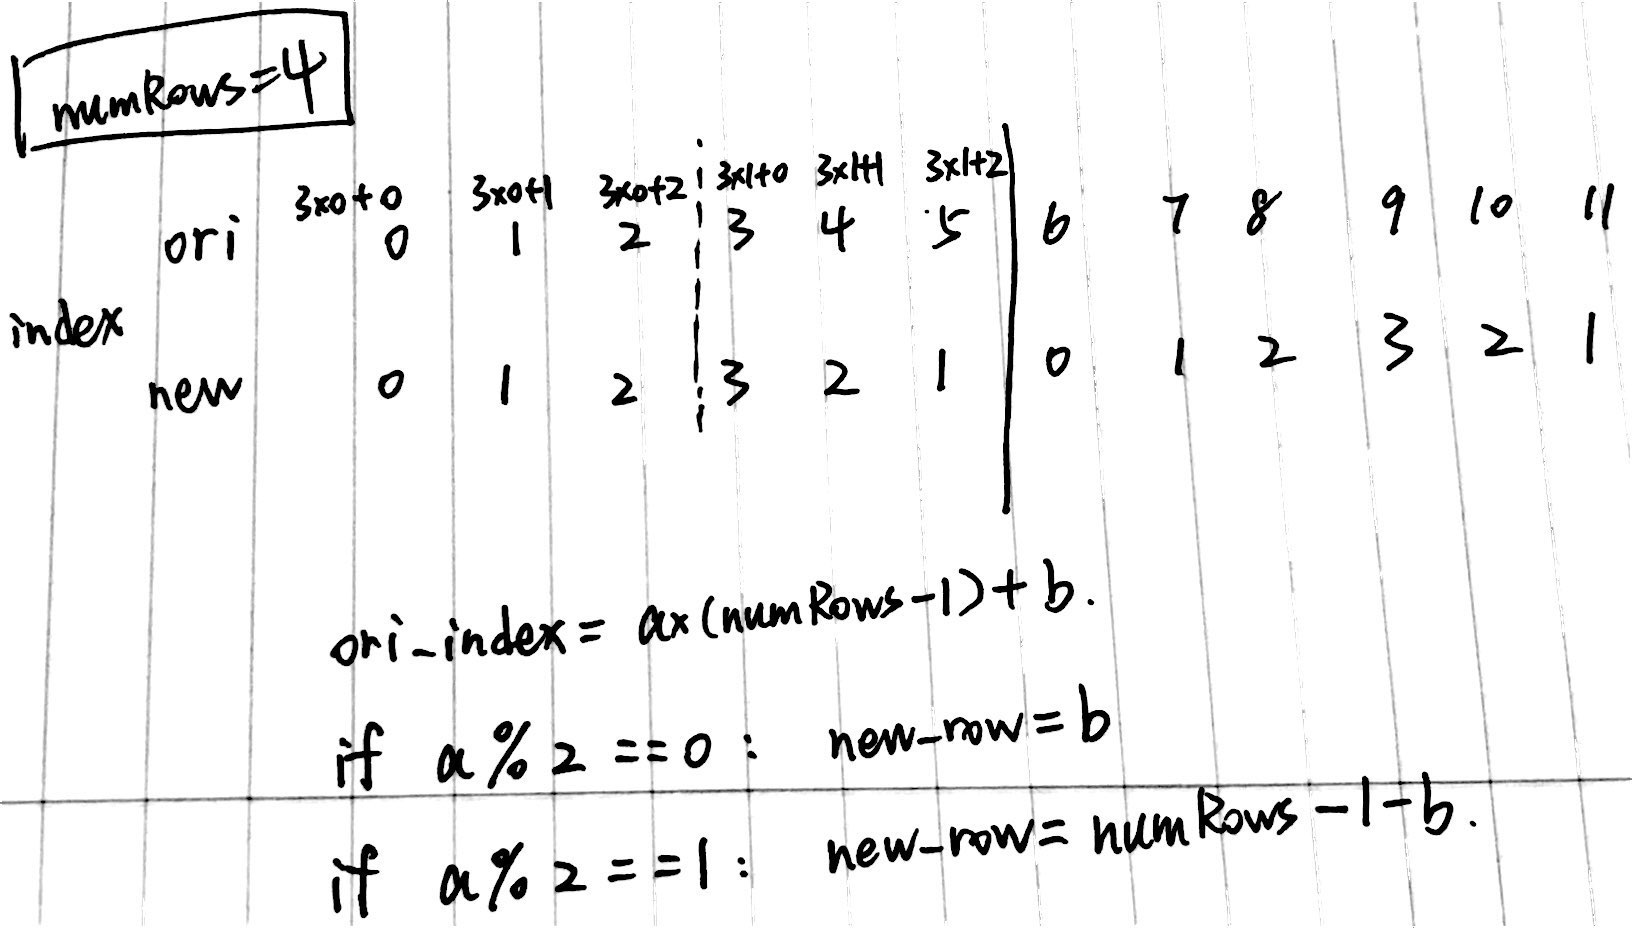 numRows=4
3x0+0 3x0+1 3x0+2 3x1+0 3x1+1 3x1+2
ori 0 1 2 3 4 5 6 7 8 9 10 11
index
new 0 1 2 3 2 1 0 1 2 3 2 1
ori_index= ax(numRows-1)+b.
if a%2==0: new_row=b
if a%2==1: new_row=numRows-1-b.